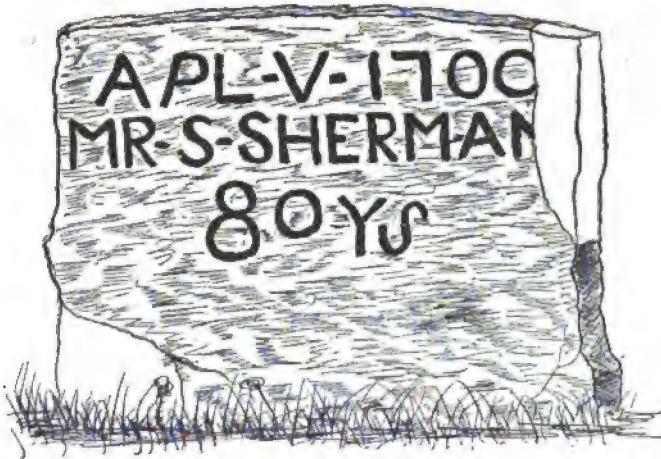 APL-V-1700
MR-S-SHERMAN
80 YS